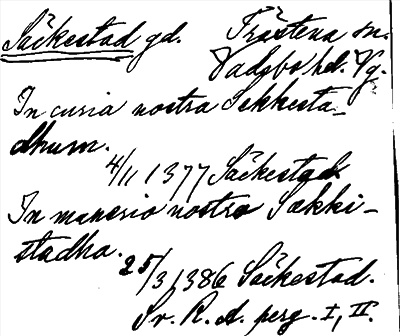 Säckestad gd. Trästena sn.
Vadsbo hd. Vg.
In curia nostra Sekkesta-
dhum.
4/11 1377 Säckestad
In manerio nostro Sækki-
stadha.
25/3 1386 Säckestad.
Sv. R. A. perg. I, II.